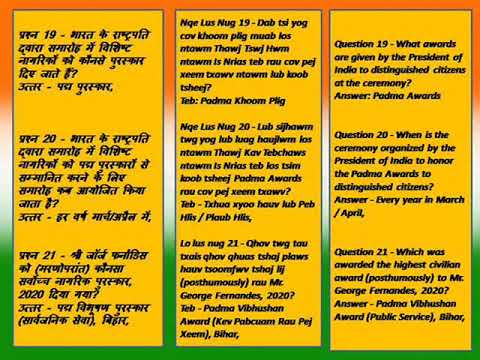 प्रश्न 19 - भारत के राष्ट्रपति
द्वारा समारोह में विशिष्ट
नागरिकों को कौनसे पुरस्कार
दिए जाते है?
उत्तर - पद्म पुरस्कार,
प्रश्न 20 - भारत के राष्ट्रपति
द्वारा समारोह में विशिष्ट
नागरिकों को पद्म पुरस्कारों से
सम्मानित करने के लिए
समारोह कब आयोजित किया
जाता है?
उत्तर - हर वर्ष मार्च/अप्रैल में,
प्रश्न 21 - श्री जॉर्ज फर्नांडिस
को (मरणोपरांत) कौनसा
सर्वोच्च नागरिक पुरस्कार,
2020 दिया गया?
उत्तर - पद्म विभूषण पुरस्कार
(सार्वजनिक सेवा), बिहार,
Nqe Lus Nug 19 - Dab tsi yog
cov khoom plig muab los
ntawm Thawj Tswj Hwm
ntawm Is Nrias teb rau cov pej
xeem txawv ntawm lub koob
tsheej?
Teb: Padma Khoom Plig
Nqe Lus Nug 20 - Lub sijhawm
twg yog lub luag haujlwm los
ntawm Thawj Kav Tebchaws
ntawm Is Nrias teb los tsim
koob tsheej Padma Awards
rau cov pej xeem txawv?
Teb - Txhua xyoo hauv lub Peb
Hlis / Plaub Hlis,
Lo lus nug 21 - Qhov twg tau
txais qhov qhuas tshaj plaws
hauv tsoomfwv tshaj lij
(posthumously) rau Mr.
George Fernandes, 2020?
Teb - Padma Vibhushan
Award (Kev Pabcuam Rau Pej
Xeem), Bihar,
Question 19 - What awards
are given by the President of
India to distinguished citizens
at the ceremony?
Answer: Padma Awards
Question 20 - When is the
ceremony organized by the
President of India to honor
the Padma Awards to
distinguished citizens?
Answer - Every year in March
/ April,
Question 21 - Which was
awarded the highest civilian
award (posthumously) to Mr.
George Fernandes, 2020?
Answer - Padma Vibhushan
Award (Public Service), Bihar,